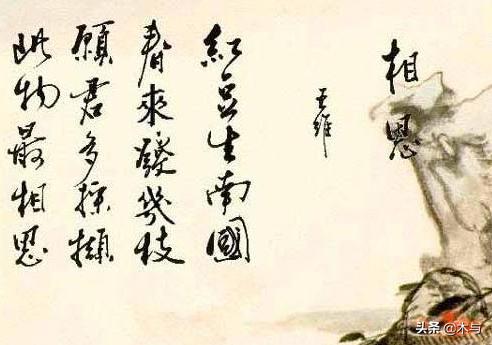 相思
王维
紅豆生南國
春來發幾枝
願君多採擷
此物最相思
头条@木与